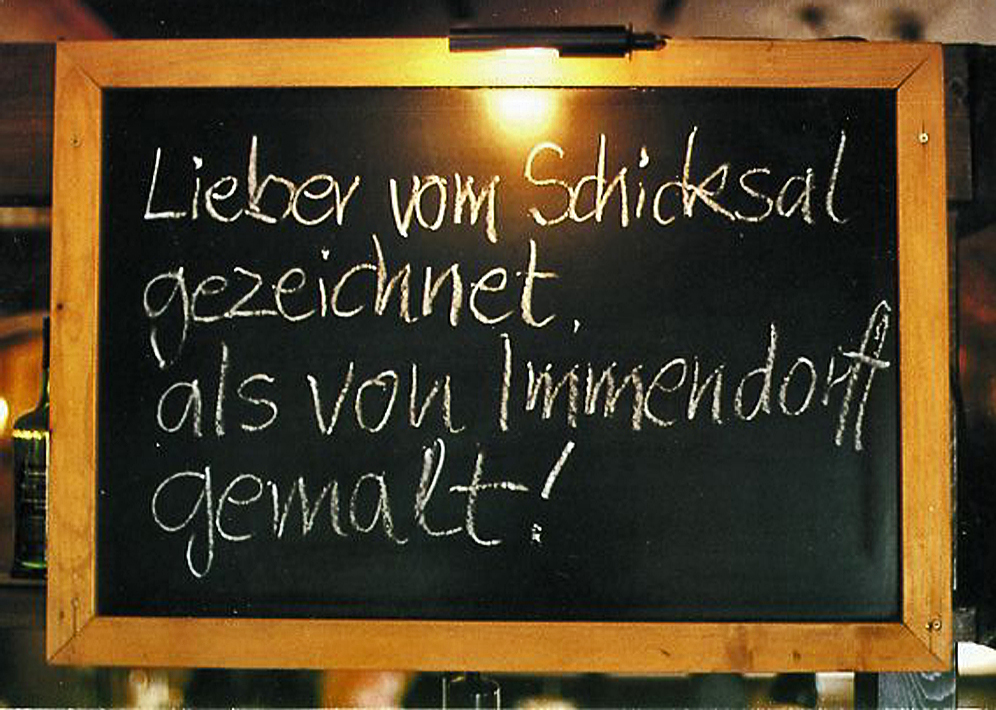 Lieber vom Schicksal
gezeichnet,
als von Immendorff
gemalt!